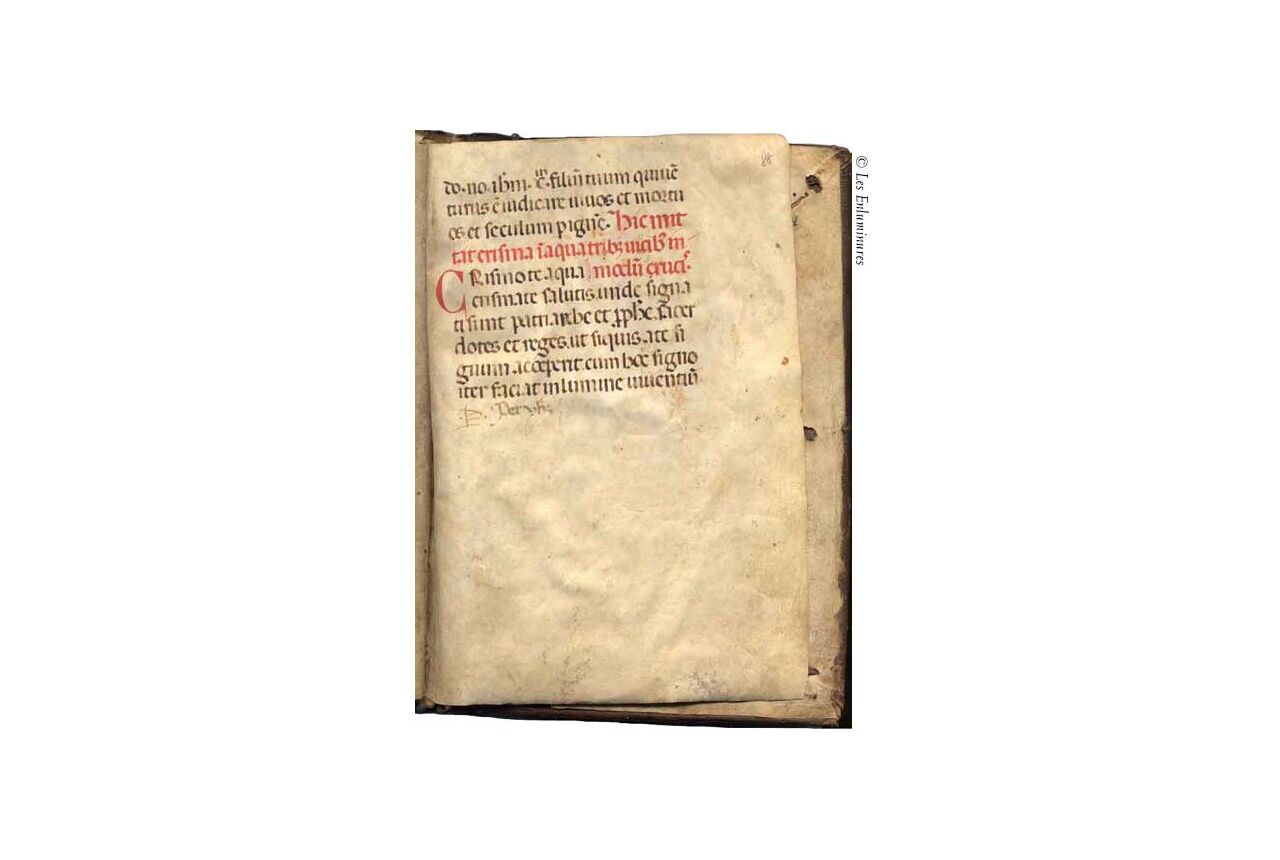 88
do. no. ihm. xp̄m. filiū tuum qui uē
turus ē iudicare uiuos et mortu
os et seculum p ignē. Hic mit
tat crisma ī aqua tribꝫ uicibꝫ in
CRismo te aqua modū cruci.
crismate salutis. unde signa
ti sunt patriarche et ꝓphe. sacer
dotes et reges. ut siquis a te si
gnum acceperit. cum hoc signo
iter faciat in lumine uiuentiū
© Les Enluminures